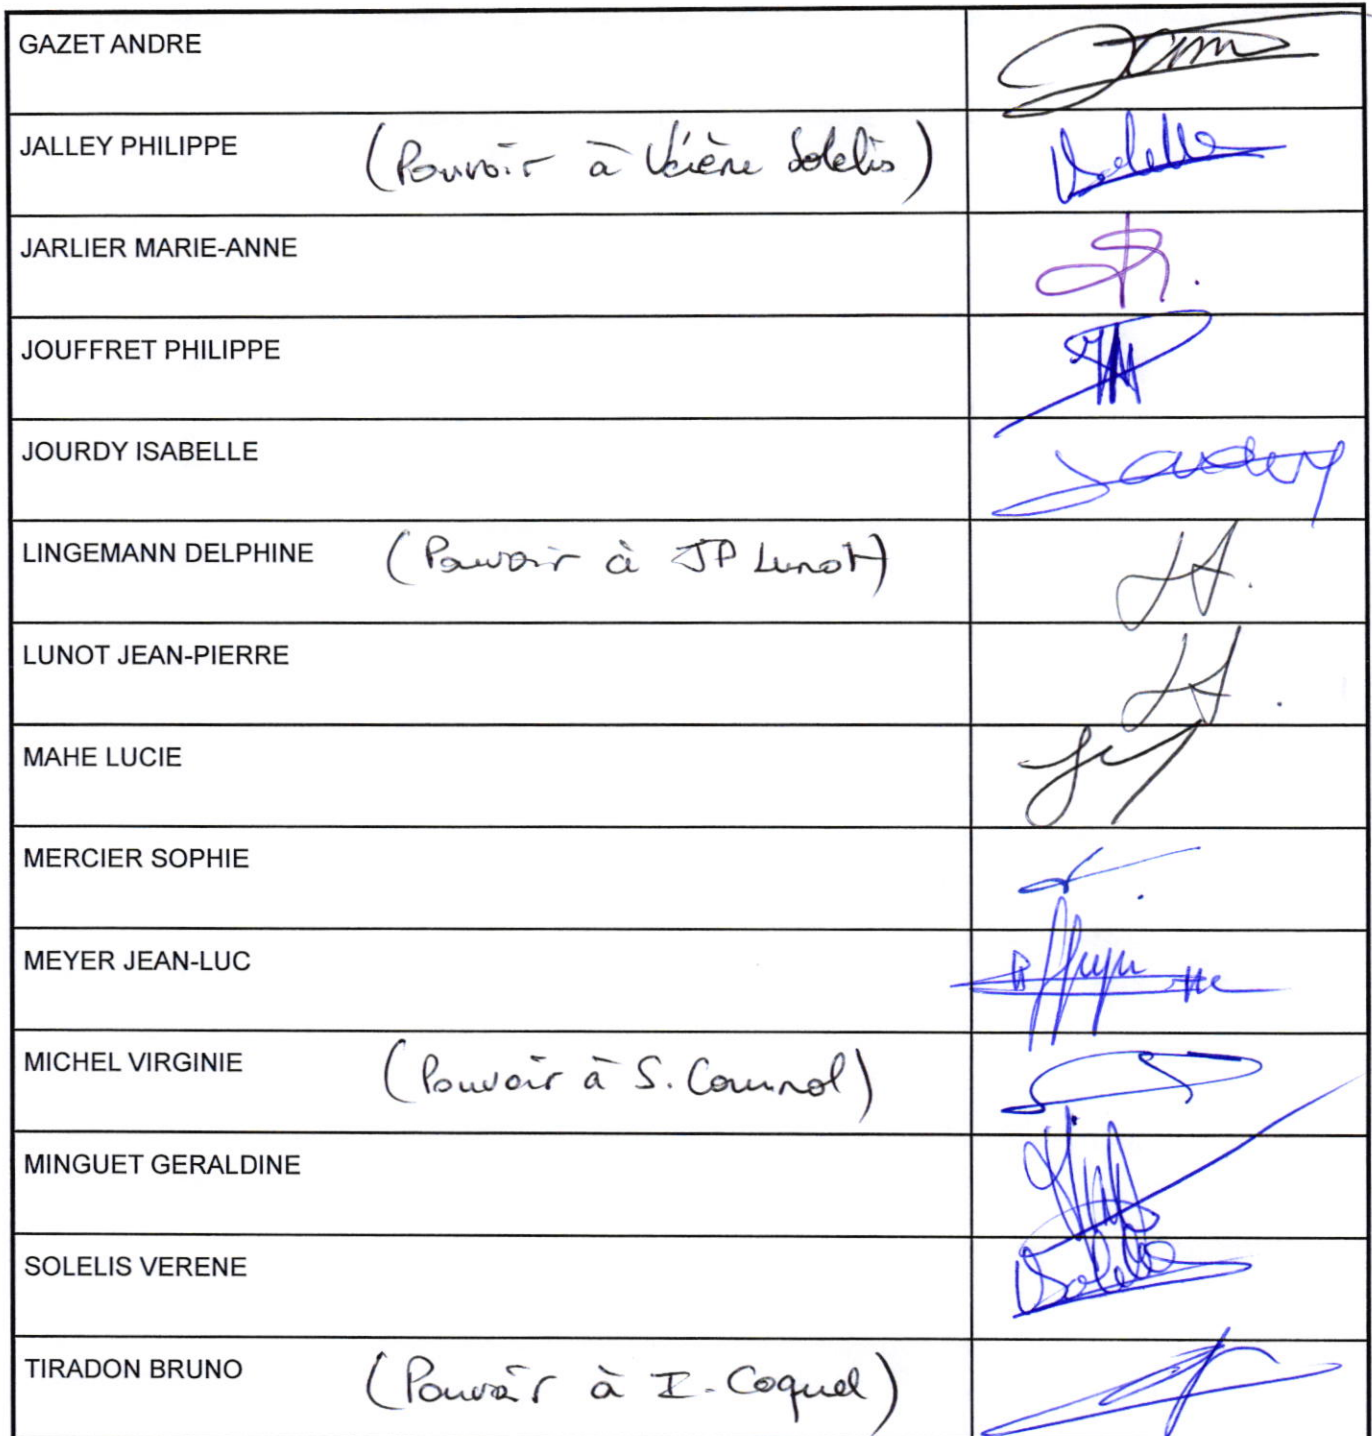 GAZET ANDRE
JALLEY PHILIPPE (Pouvoir à Vérène Solelis)
JARLIER MARIE-ANNE
JOUFFRET PHILIPPE
JOURDY ISABELLE
LINGEMANN DELPHINE (Pouvoir à JP Lunot)
LUNOT JEAN-PIERRE
MAHE LUCIE
MERCIER SOPHIE
MEYER JEAN-LUC
MICHEL VIRGINIE (Pouvoir à S. )
MINGUET GERALDINE
SOLELIS VERENE
TIRADON BRUNO (Pouvoir à I. Coquel)